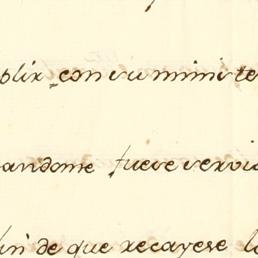 plir con su ministe
andome fuese servid
fin de que recayese la